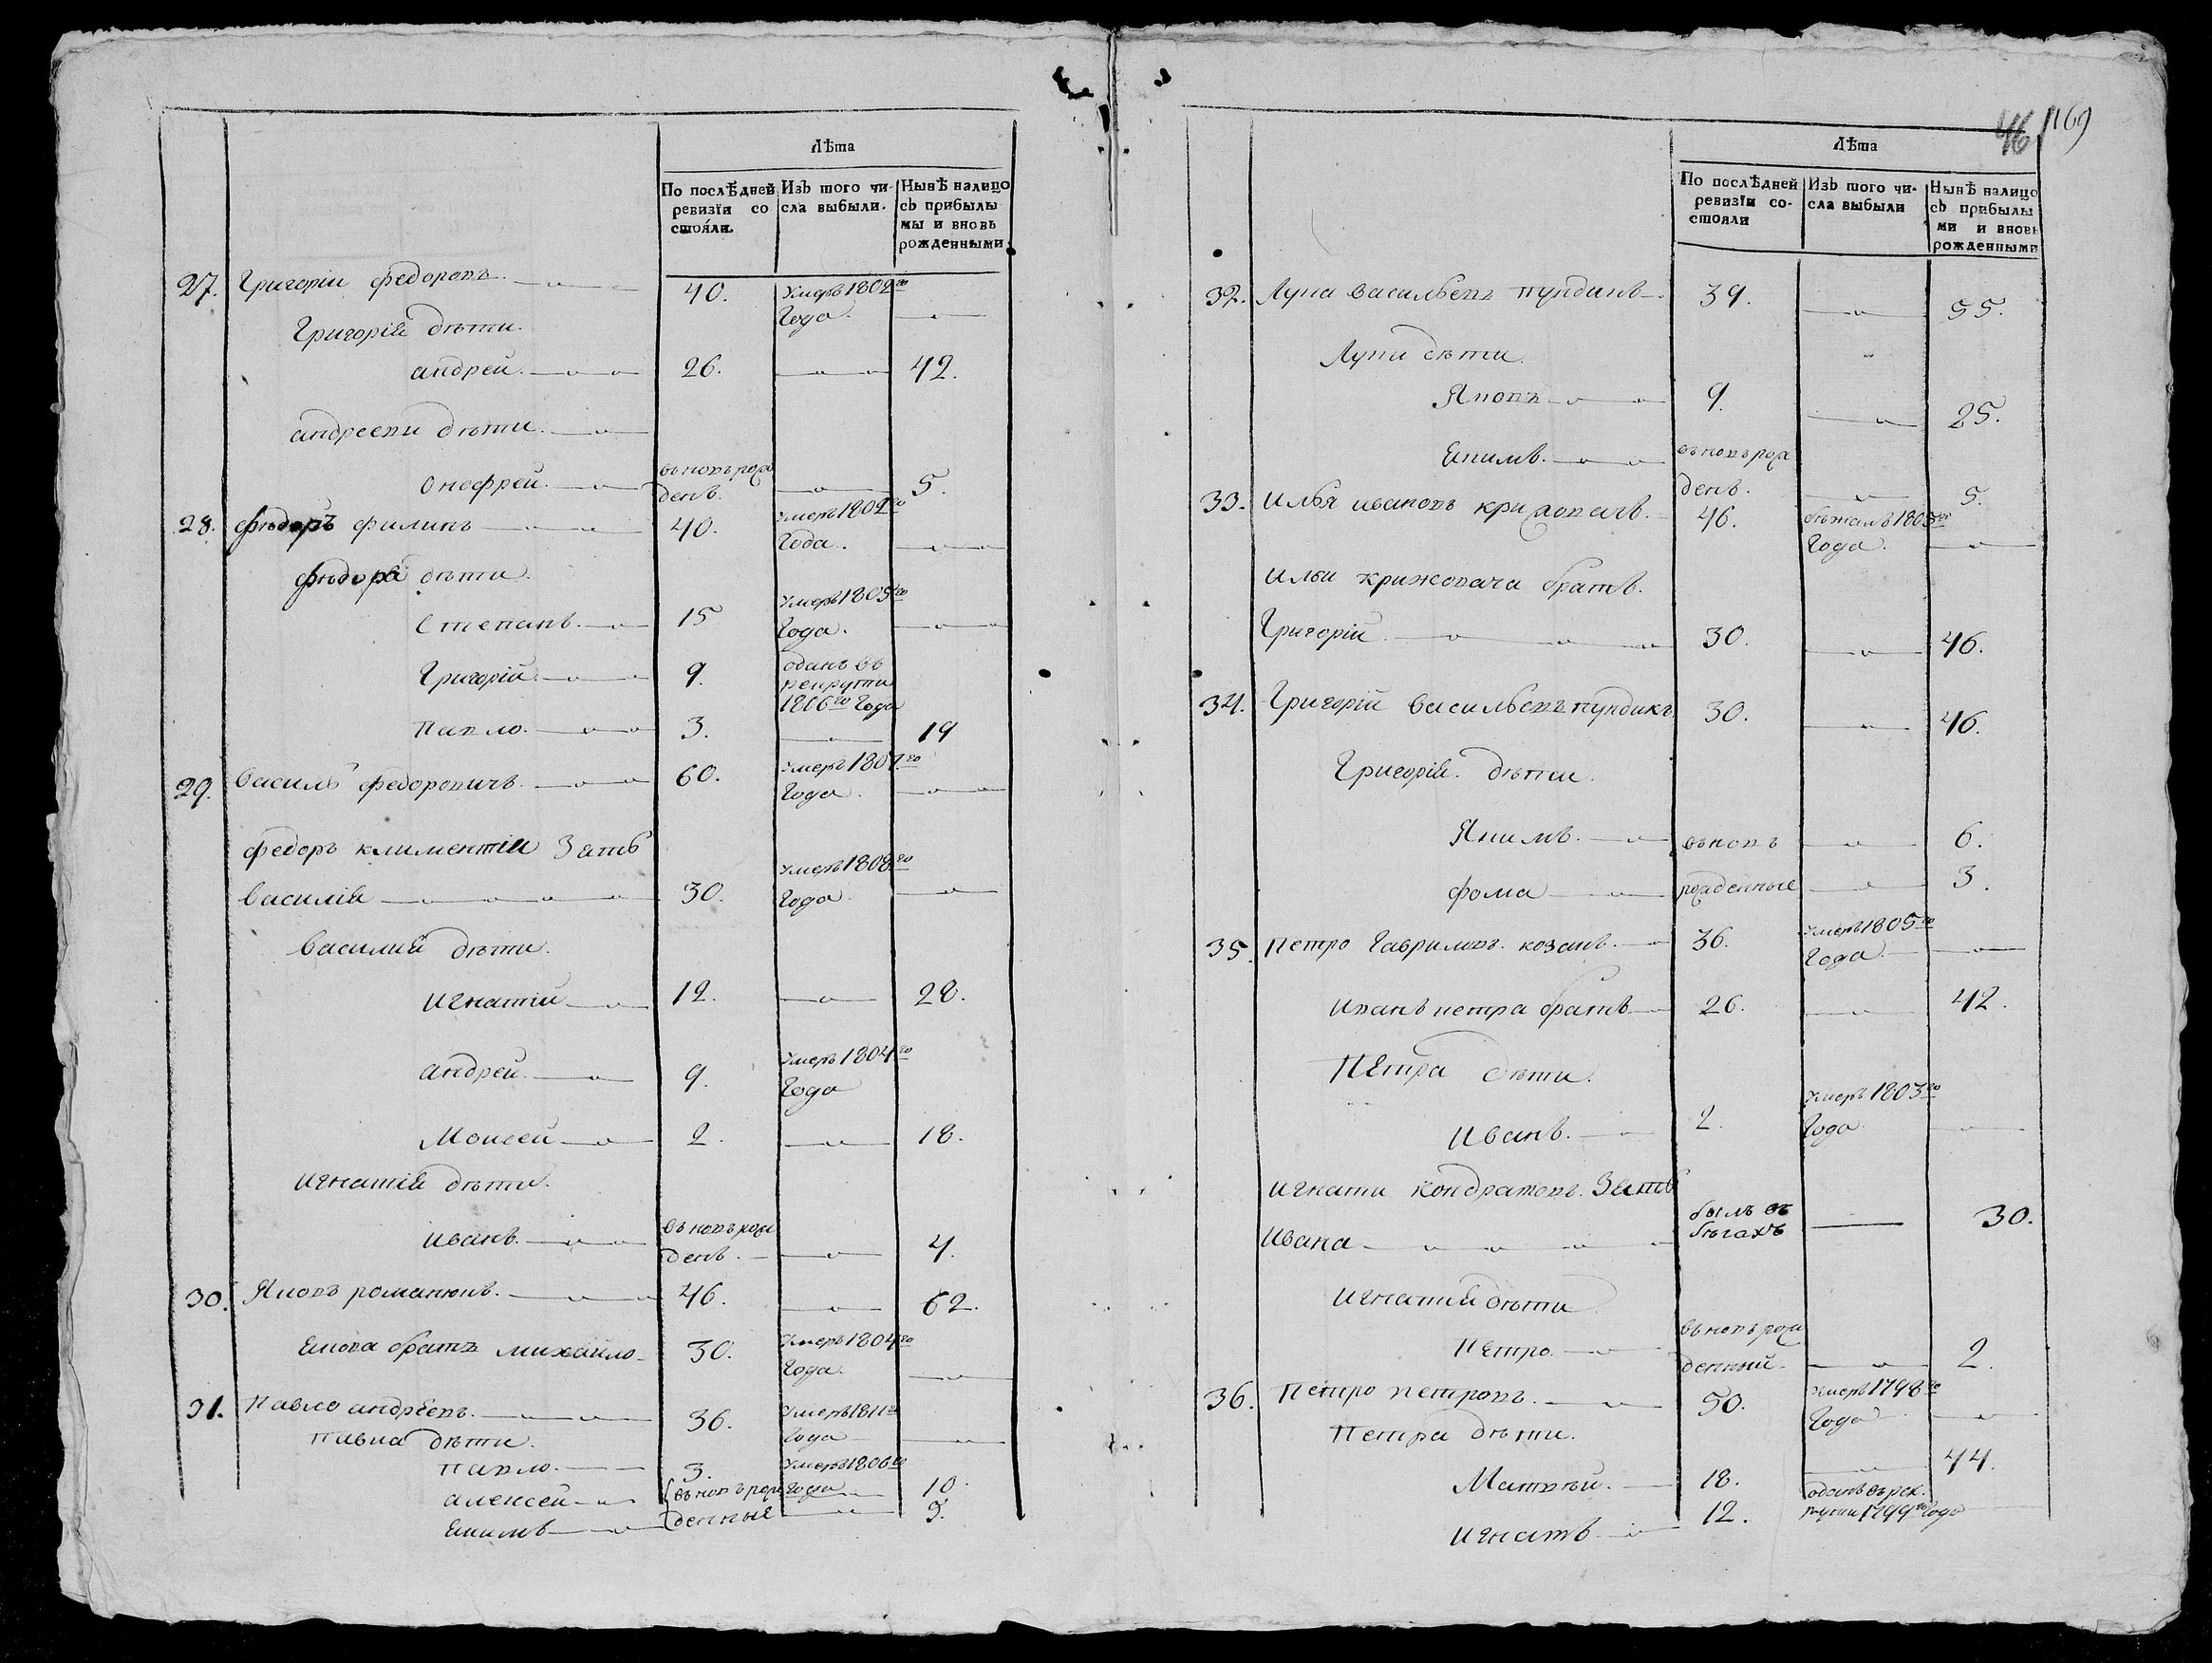 Лѣта
По послѣдней ревизіи состояли.
Изъ того числа выбыли.
Нынѣ налицо съ прибылымы и вновь рожденными.
27. Григорій федоровъ 40. Умеръ 1802го Года.
Григорія дѣти.
андрей. 26. 42.
андреевы дѣти.
онофрей. въновьрожденъ. 5.
28. фѣдоръ филипъ 40. Умеръ 1802го Года.
фѣдора дѣти.
Степанъ. 15 Умеръ 1809го Года.
Григорій. 9. отданъ въ рекруты 1806го Года
Павло. 3. 19
29. Василь федоровичъ. 60. Умеръ 1807го Года.
федоръ климентіи Зять
василія 30. Умеръ 1808го Года.
Василия дѣти.
игнатій 12. 28.
андрей. 9. Умеръ 1804го Года
Моисей 2. 18.
игнатія дѣти.
иванъ. въновьрожденъ. 4.
30. Яковъ романюкъ. 46. 62.
Якова братъ михайло 30. Умеръ 1804го Года.
31. Павло андрѣевъ. 36. Умеръ 1811го Года
павла дѣти.
павло. 3. Умеръ 1806го Года
алексей въновьрожденные 10.
Екимъ 5.
46 1169
Лѣта
По послѣдней ревизіи состояли
Изъ того числа выбыли
Нынѣ налицо съ прибылыми и вновь рожденными
32. Лука васильевъ пундикъ. 39. 55.
Луки дѣти.
Яковъ 9. 25.
Екимъ. въновьрожденъ. 5.
33. илья ивановъ крижовачъ. 46. бѣжалъ 1805го Года.
ильи крижовача братъ.
Григорій 30. 46.
34. Григорій васильевъ пундикъ 30. 46.
Григорія. дѣти.
Якимъ. въновь 6.
фома рожденные 3.
35. Петро Гавриловъ. козакъ. 36. Умеръ 1805го Года.
Иванъ петра братъ 26. 42.
Петра дѣти.
иванъ. 2. Умеръ 1803го Года.
игнати кондратовъ. Зять
Ивана былъ въ бѣгахъ 30.
игнатия дѣти
Петро. въновьрожденный. 2.
36. Петро петровъ. 50. Умеръ 1798го Года
Петра дѣти.
Матвѣй. 18. 44.
игнатъ 12. отданъ въ рекруты 1799го Года